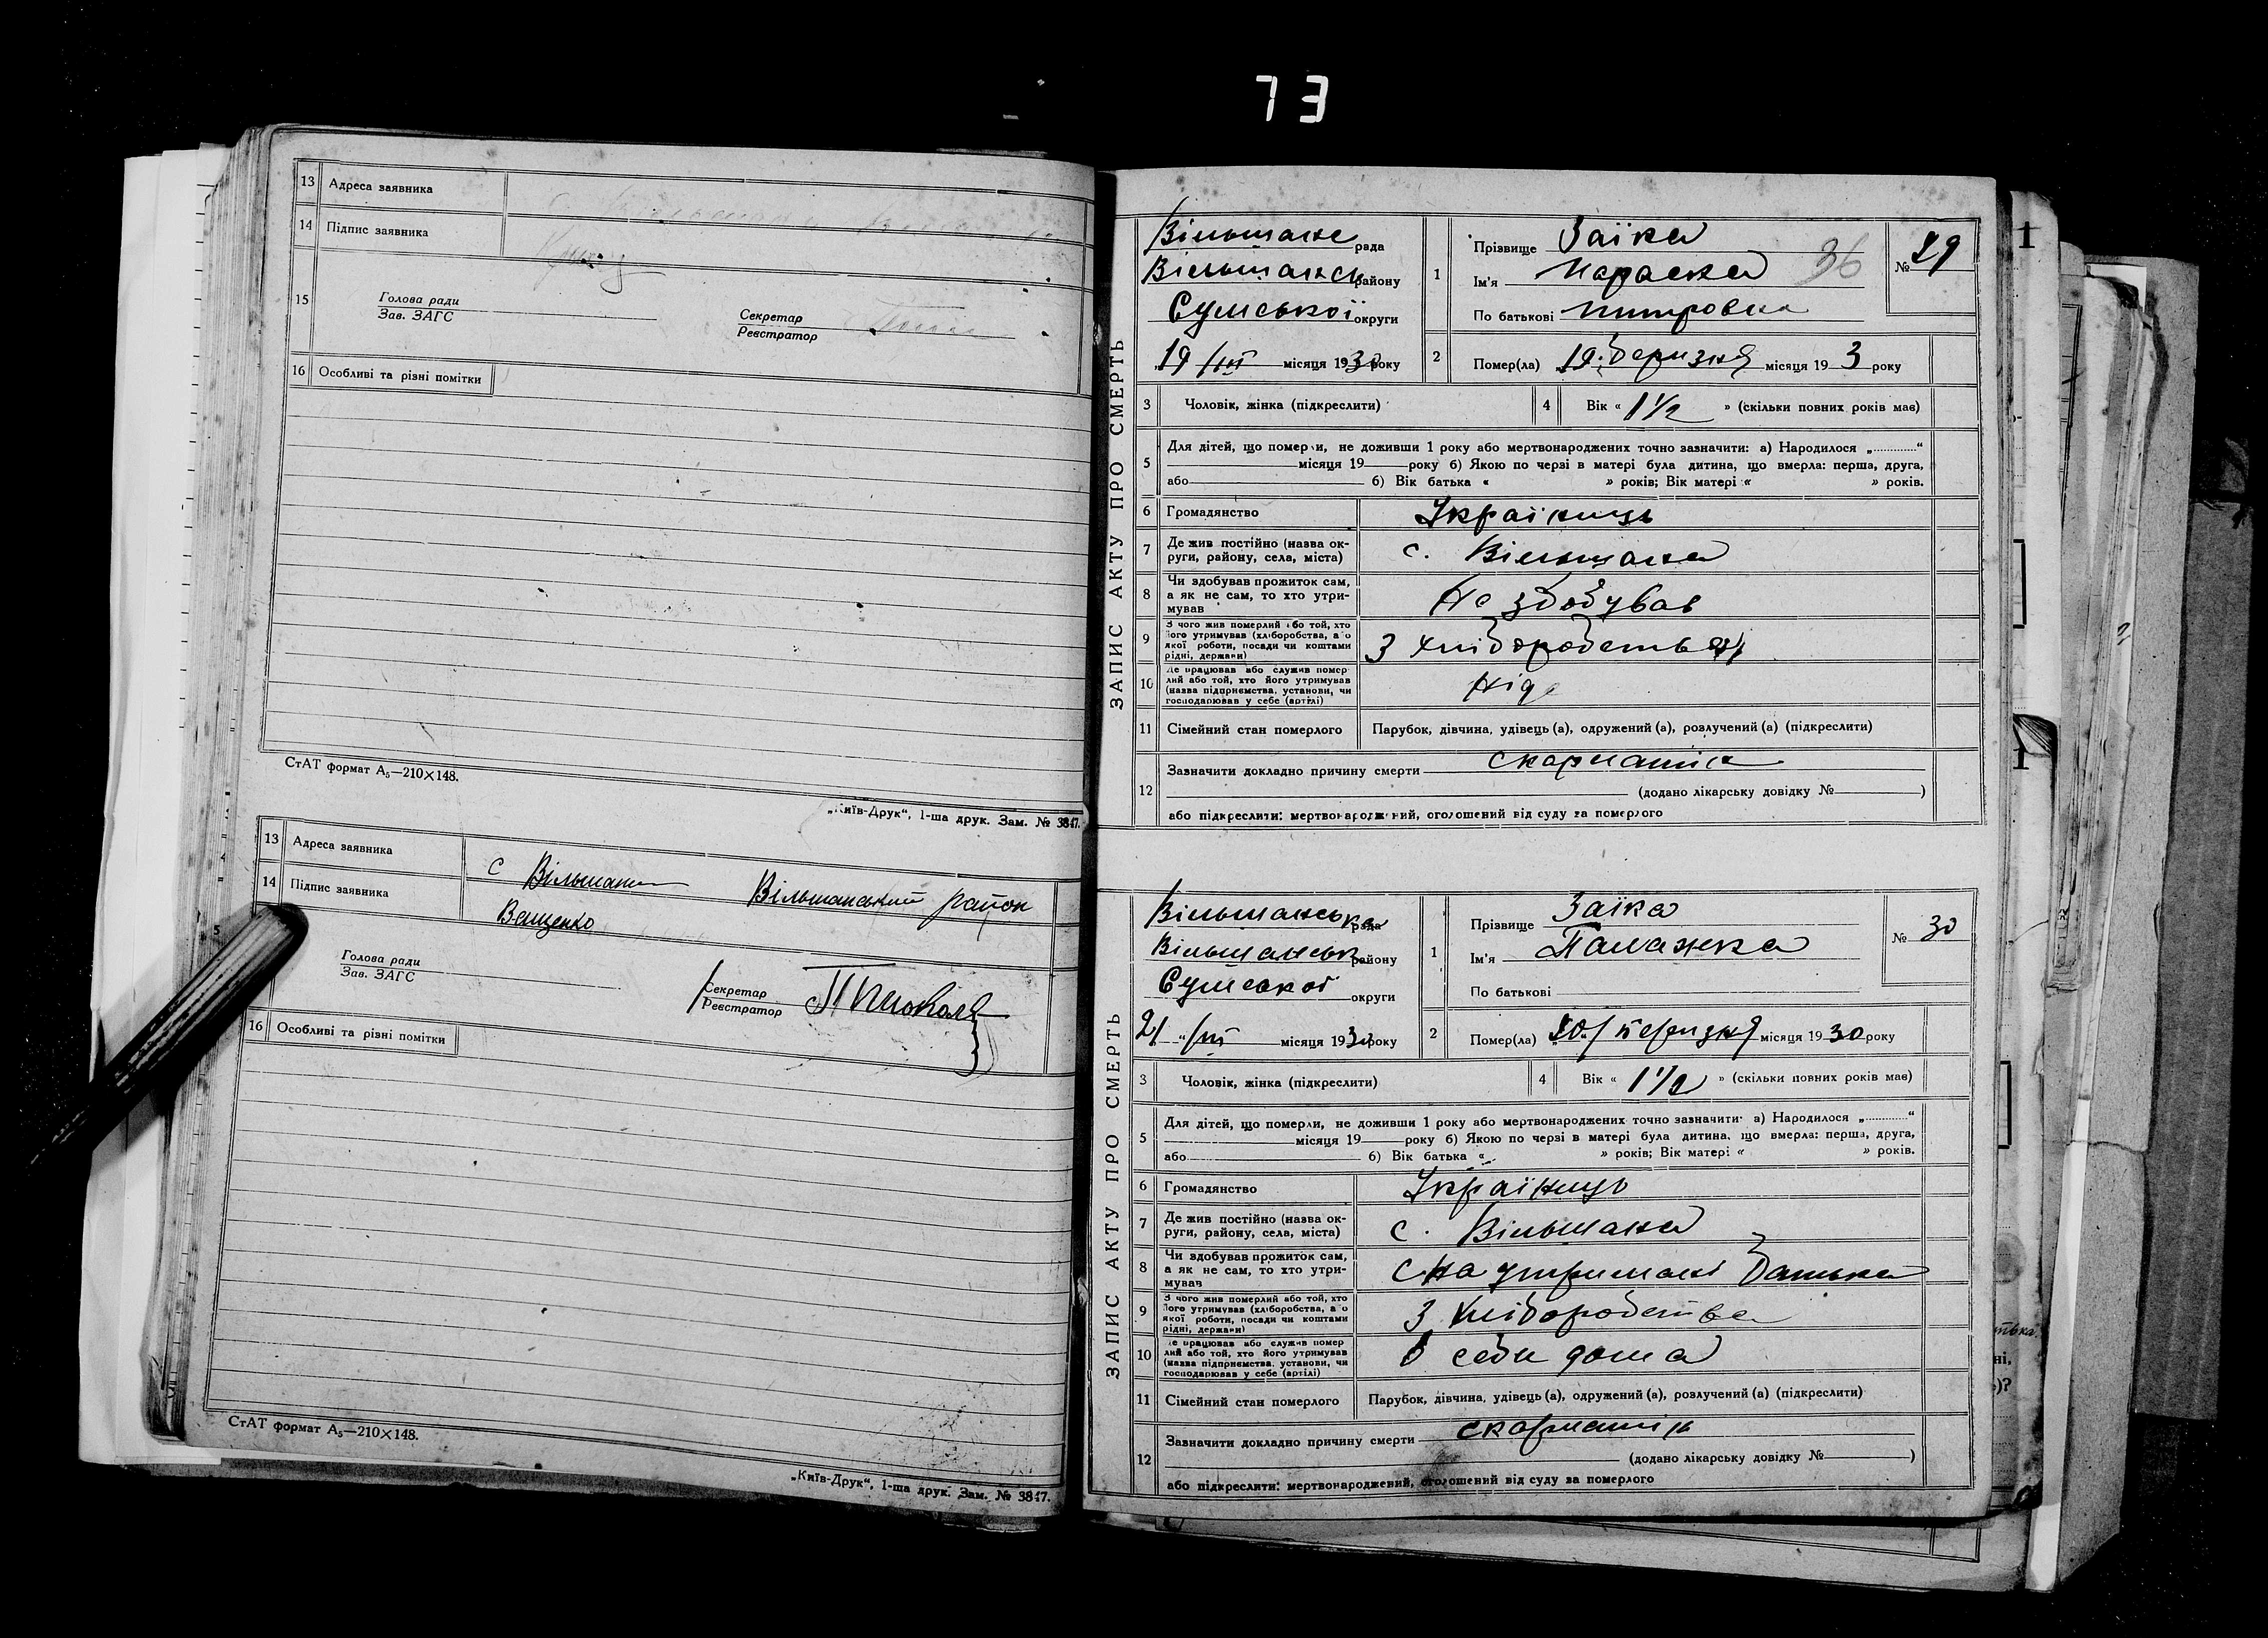 73
13 Адреса заявника
14 Підпис заявника
15 Голова ради
Зав. ЗАГС
Секретар
Реєстратор
16 Особливі та різні помітки
СтАТ формат А₅—210×148.
„Київ-Друк“, 1-ша друк. Зам. № 3847.
13 Адреса заявника с Вільшани Вільшанський район
14 Підпис заявника Ващенко
Голова ради
Зав. ЗАГС
Секретар
Реєстратор
16 Особливі та різні помітки
СтАТ формат А₅—210×148.
„Київ-Друк“, 1-ша друк. Зам. № 3847.
ЗАПИС АКТУ ПРО СМЕРТЬ
Вільшане рада
Вільшанськ району
Сумської округи
19 /III місяця 1930 року
1 Прізвище Заїка
Ім'я Параска 36
По батькові
№ 29
2 Помер(ла) 19. березня місяця 193 року
3 Чоловік, жінка (підкреслити)
4 Вік « 1 1/2 » (скільки повних років має)
5 Для дітей, що померли, не доживши 1 року або мертвонароджених точно зазначити: а) Народилося „..........“
місяця 19 року б) Якою по черзі в матері була дитина, що вмерла: перша, друга,
або б) Вік батька « » років; Вік матері « » років.
6 Громадянство Українць
7 Де жив постійно (назва округи, району, села, міста) с. Вільшана
8 Чи здобував прожиток сам, а як не сам, то хто утримував Не здобував
9 З чого жив померлий або той, хто його утримував (хліборобства, або якої роботи, посади чи коштами рідні, держави) З хліборобства
10 Де працював або служив померлий або той, хто його утримував (назва підприємства, установи, чи господарював у себе (артілі)
11 Сімейний стан померлого Парубок, дівчина, удівець (а), одружений (а), розлучений (а) (підкреслити)
12 Зазначити докладно причину смерти скарлатіна
(додано лікарську довідку № )
або підкреслити: мертвонароджений, оголошений від суду за померлого
ЗАПИС АКТУ ПРО СМЕРТЬ
Вільшанська рада
Вільшанськ району
Сумської округи
21 „ /III місяця 1930 року
1 Прізвище Заїка
Ім'я Палажка
По батькові
№ 30
2 Помер(ла) 20/ березня місяця 1930 року
3 Чоловік, жінка (підкреслити)
4 Вік « 1 1/2 » (скільки повних років має)
5 Для дітей, що померли, не доживши 1 року або мертвонароджених точно зазначити: а) Народилося „..........“
місяця 19 року б) Якою по черзі в матері була дитина, що вмерла: перша, друга,
або б) Вік батька « » років; Вік матері « » років.
6 Громадянство Українць
7 Де жив постійно (назва округи, району, села, міста) с. Вільшана
8 Чи здобував прожиток сам, а як не сам, то хто утримував на утримані батька
9 З чого жив померлий або той, хто його утримував (хліборобства, або якої роботи, посади чи коштами рідні, держави) З хліборобства
10 Де працював або служив померлий або той, хто його утримував (назва підприємства, установи, чи господарював у себе (артілі) В себи дома
11 Сімейний стан померлого Парубок, дівчина, удівець (а), одружений (а), розлучений (а) (підкреслити)
12 Зазначити докладно причину смерти
(додано лікарську довідку № )
або підкреслити: мертвонароджений, оголошений від суду за померлого